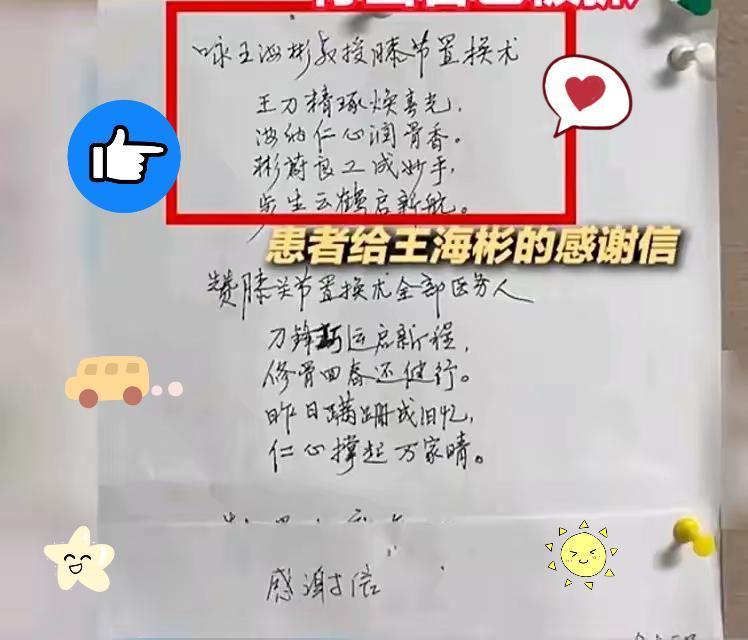 咏王海彬教授膝节置换术
王刀精琢焕春光,
海纳仁心润骨香。
彬蔚良工成妙手,
云鹤启新航。
患者给王海彬的感谢信
赞膝关节置换术全部医务人
刀锋巧运启新程,
修骨回春还健行。
昨日蹒跚成旧忆,
仁心撑起万家晴。
感谢信